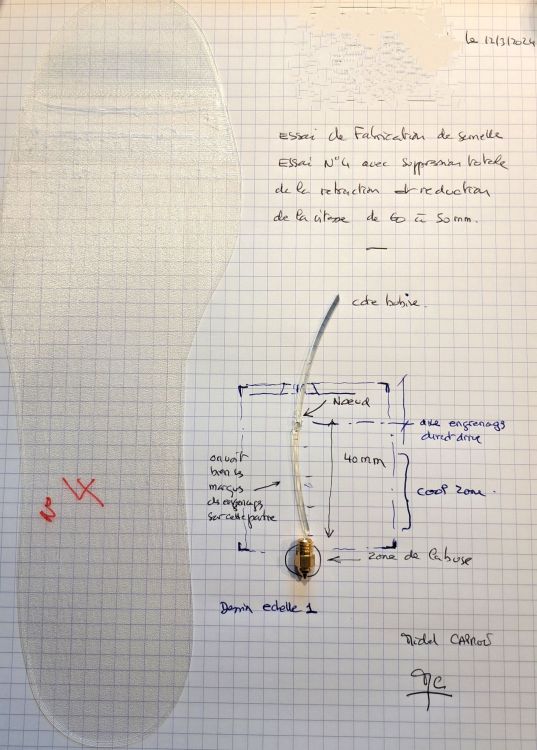 le 12/3/2024
Essai de Fabrication de semelle
Essai N°4 avec suppression totale
de la retraction et reduction
de la vitesse de 60 à 50mm.
cote bobine.
Noeud
axe engrenage
direct drive
40mm
on voit
bien les
marques
des engrenages
sur cette partie
cool zone.
N° 4
zone de la buse
Dessin echelle 1
Michel
MC